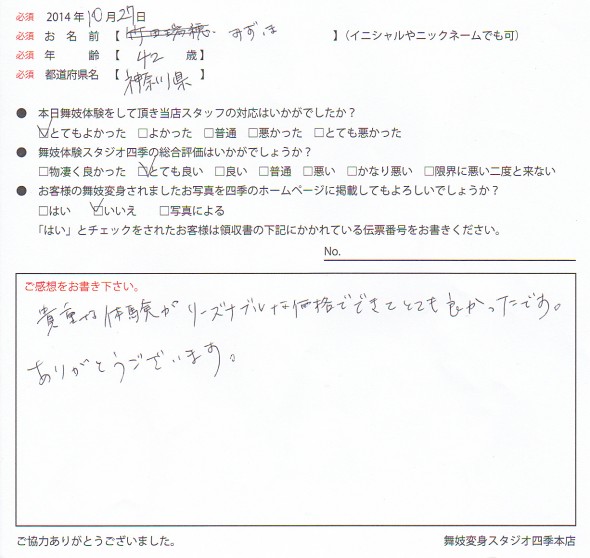 必須 2014年10月27日
必須 お名前【 みずほ 】(イニシャルやニックネームでも可)
必須 年齢【 42 歳】
必須 都道府県名【 神奈川県 】
● 本日舞妓体験をして頂き当店スタッフの対応はいかがでしたか?
☑とてもよかった □よかった □普通 □悪かった □とても悪かった
● 舞妓体験スタジオ四季の総合評価はいかがでしょうか?
□物凄く良かった ☑とても良い □良い □普通 □悪い □かなり悪い □限界に悪い二度と来ない
● お客様の舞妓変身されましたお写真を四季のホームページに掲載してもよろしいでしょうか?
□はい ☑いいえ □写真による
「はい」とチェックをされたお客様は領収書の下記にかかれている伝票番号をお書きください。
No.
ご感想をお書き下さい。
貴重な体験がリーズナブルな価格でできてとても良かったです。
ありがとうございます。
ご協力ありがとうございました。 舞妓変身スタジオ四季本店